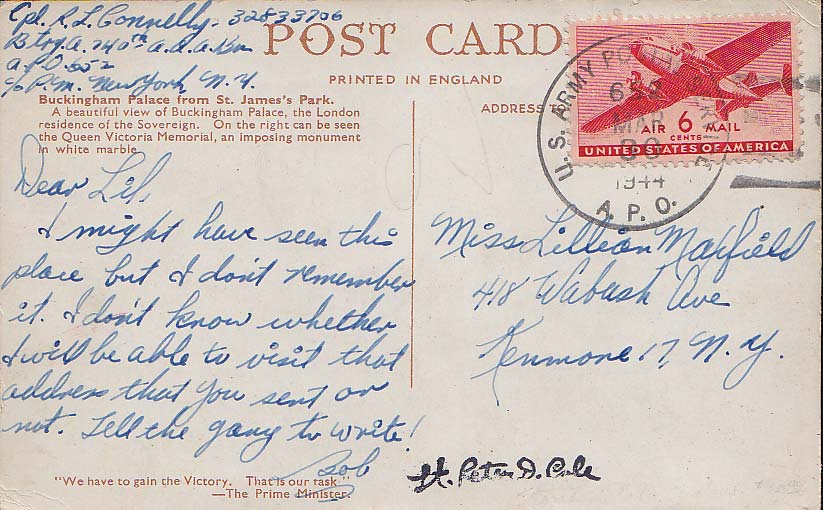 Cpl. R. L. Connelly - 32833706
Btry. A. 740th a.a.a. Bn
A.P.O. 652
c/o P.M. New York, N.Y.
POST CARD
PRINTED IN ENGLAND
Buckingham Palace from St. James's Park.
A beautiful view of Buckingham Palace, the London
residence of the Sovereign. On the right can be seen
the Queen Victoria Memorial, an imposing monument
in white marble.
ADDRESS TO
U.S. ARMY POSTAL SERVICE
652
MAR
30
1944
A. P. O.
AIR 6 MAIL
CENTS
UNITED STATES OF AMERICA
Dear Lil,
I might have seen this
place but I don't remember
it. I don't know whether
I will be able to visit that
address that you sent or
not. Tell the gang to write!
Bob
Miss Lillian Maxfield
418 Wabash Ave
Kenmore 17, N.Y.
Lt. Peter D. Cole
"We have to gain the Victory. That is our task"
—The Prime Minister.